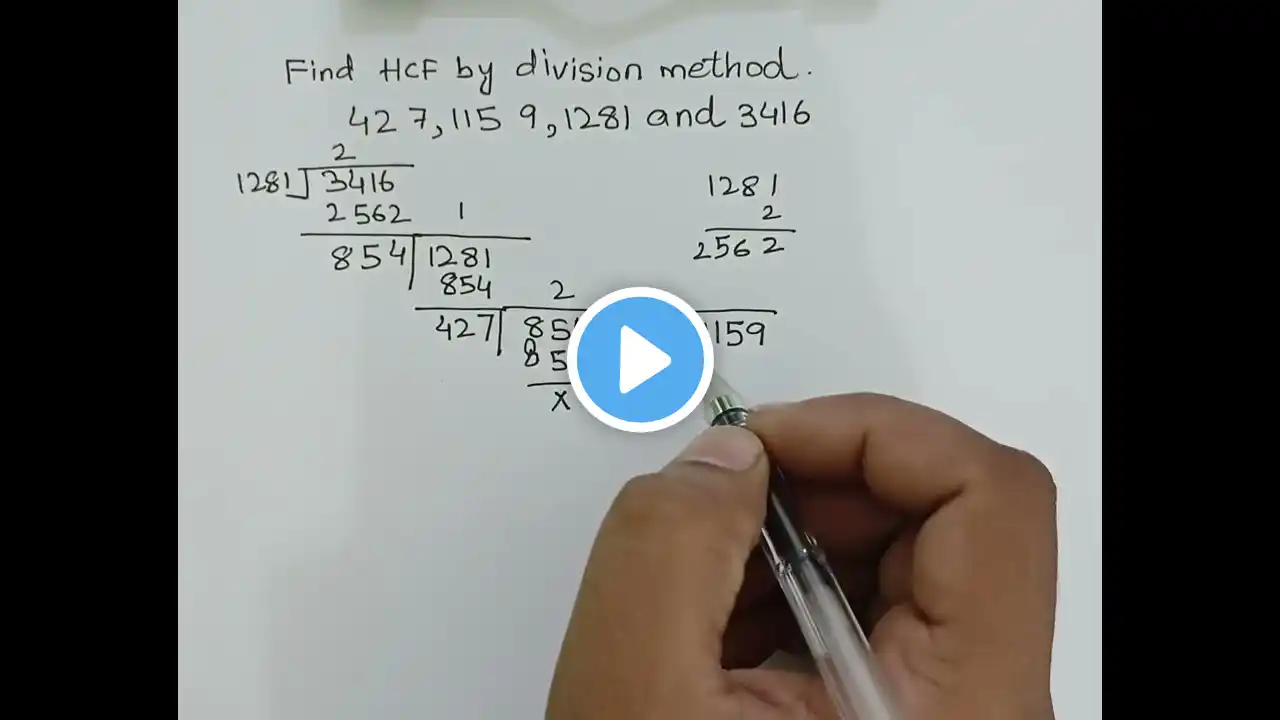 Find HCF by division method.
427, 1159, 1281 and 3416
2
1281 3416
2562 1
854 1281
854 2
427 85
85
x
1281
2
2562
159